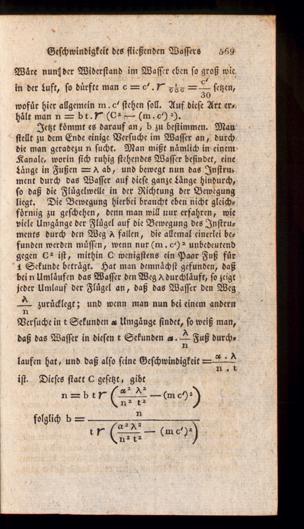 Geschwindigkeit des fließenden Wassers 569
Wäre nun der Widerstand im Wasser eben so groß wie
in der Luft, so dürfte man c = c'. r 1/900 = c'/30 setzen,
wofür hier allgemein m. c' stehen soll. Auf diese Art er-
hält man n = b t. r (C² — (m. c')²).
Jetzt kömmt es darauf an, b zu bestimmen. Man
stellt zu dem Ende einige Versuche im Wasser an, durch
die man geradezu n sucht. Man mißt nämlich in einem
Kanale, worin sich ruhig stehendes Wasser befindet, eine
Länge in Fußen = λ ab, und bewegt nun das Instru-
ment durch das Wasser auf diese ganze Länge hindurch,
so daß die Flügelwelle in der Richtung der Bewegung
liegt. Die Bewegung hierbei braucht eben nicht gleich-
förmig zu geschehen, denn man will nur erfahren, wie
viele Umgänge der Flügel auf die Bewegung des Instru-
ments durch den Weg λ fallen, die allemal einerlei be-
funden werden müssen, wenn nur (m. c')² unbedeutend
gegen C² ist, mithin C wenigstens ein Paar Fuß für
1 Sekunde beträgt. Hat man demnächst gefunden, daß
bei n Umläufen das Wasser den Weg λ durchläuft, so zeigt
jeder Umlauf der Flügel an, daß das Wasser den Weg
λ/n zurücklegt; und wenn man nun bei einem andern
Versuche in t Sekunden α Umgänge findet, so weiß man,
daß das Wasser in diesen t Sekunden α. λ/n Fuß durch-
laufen hat, und daß also seine Geschwindigkeit = α. λ/n. t
ist. Dieses statt C gesetzt, gibt
n = b t r (α² λ²/n² t² — (m c')²)
folglich b = n/t r (α² λ²/n² t² — (m c')²)